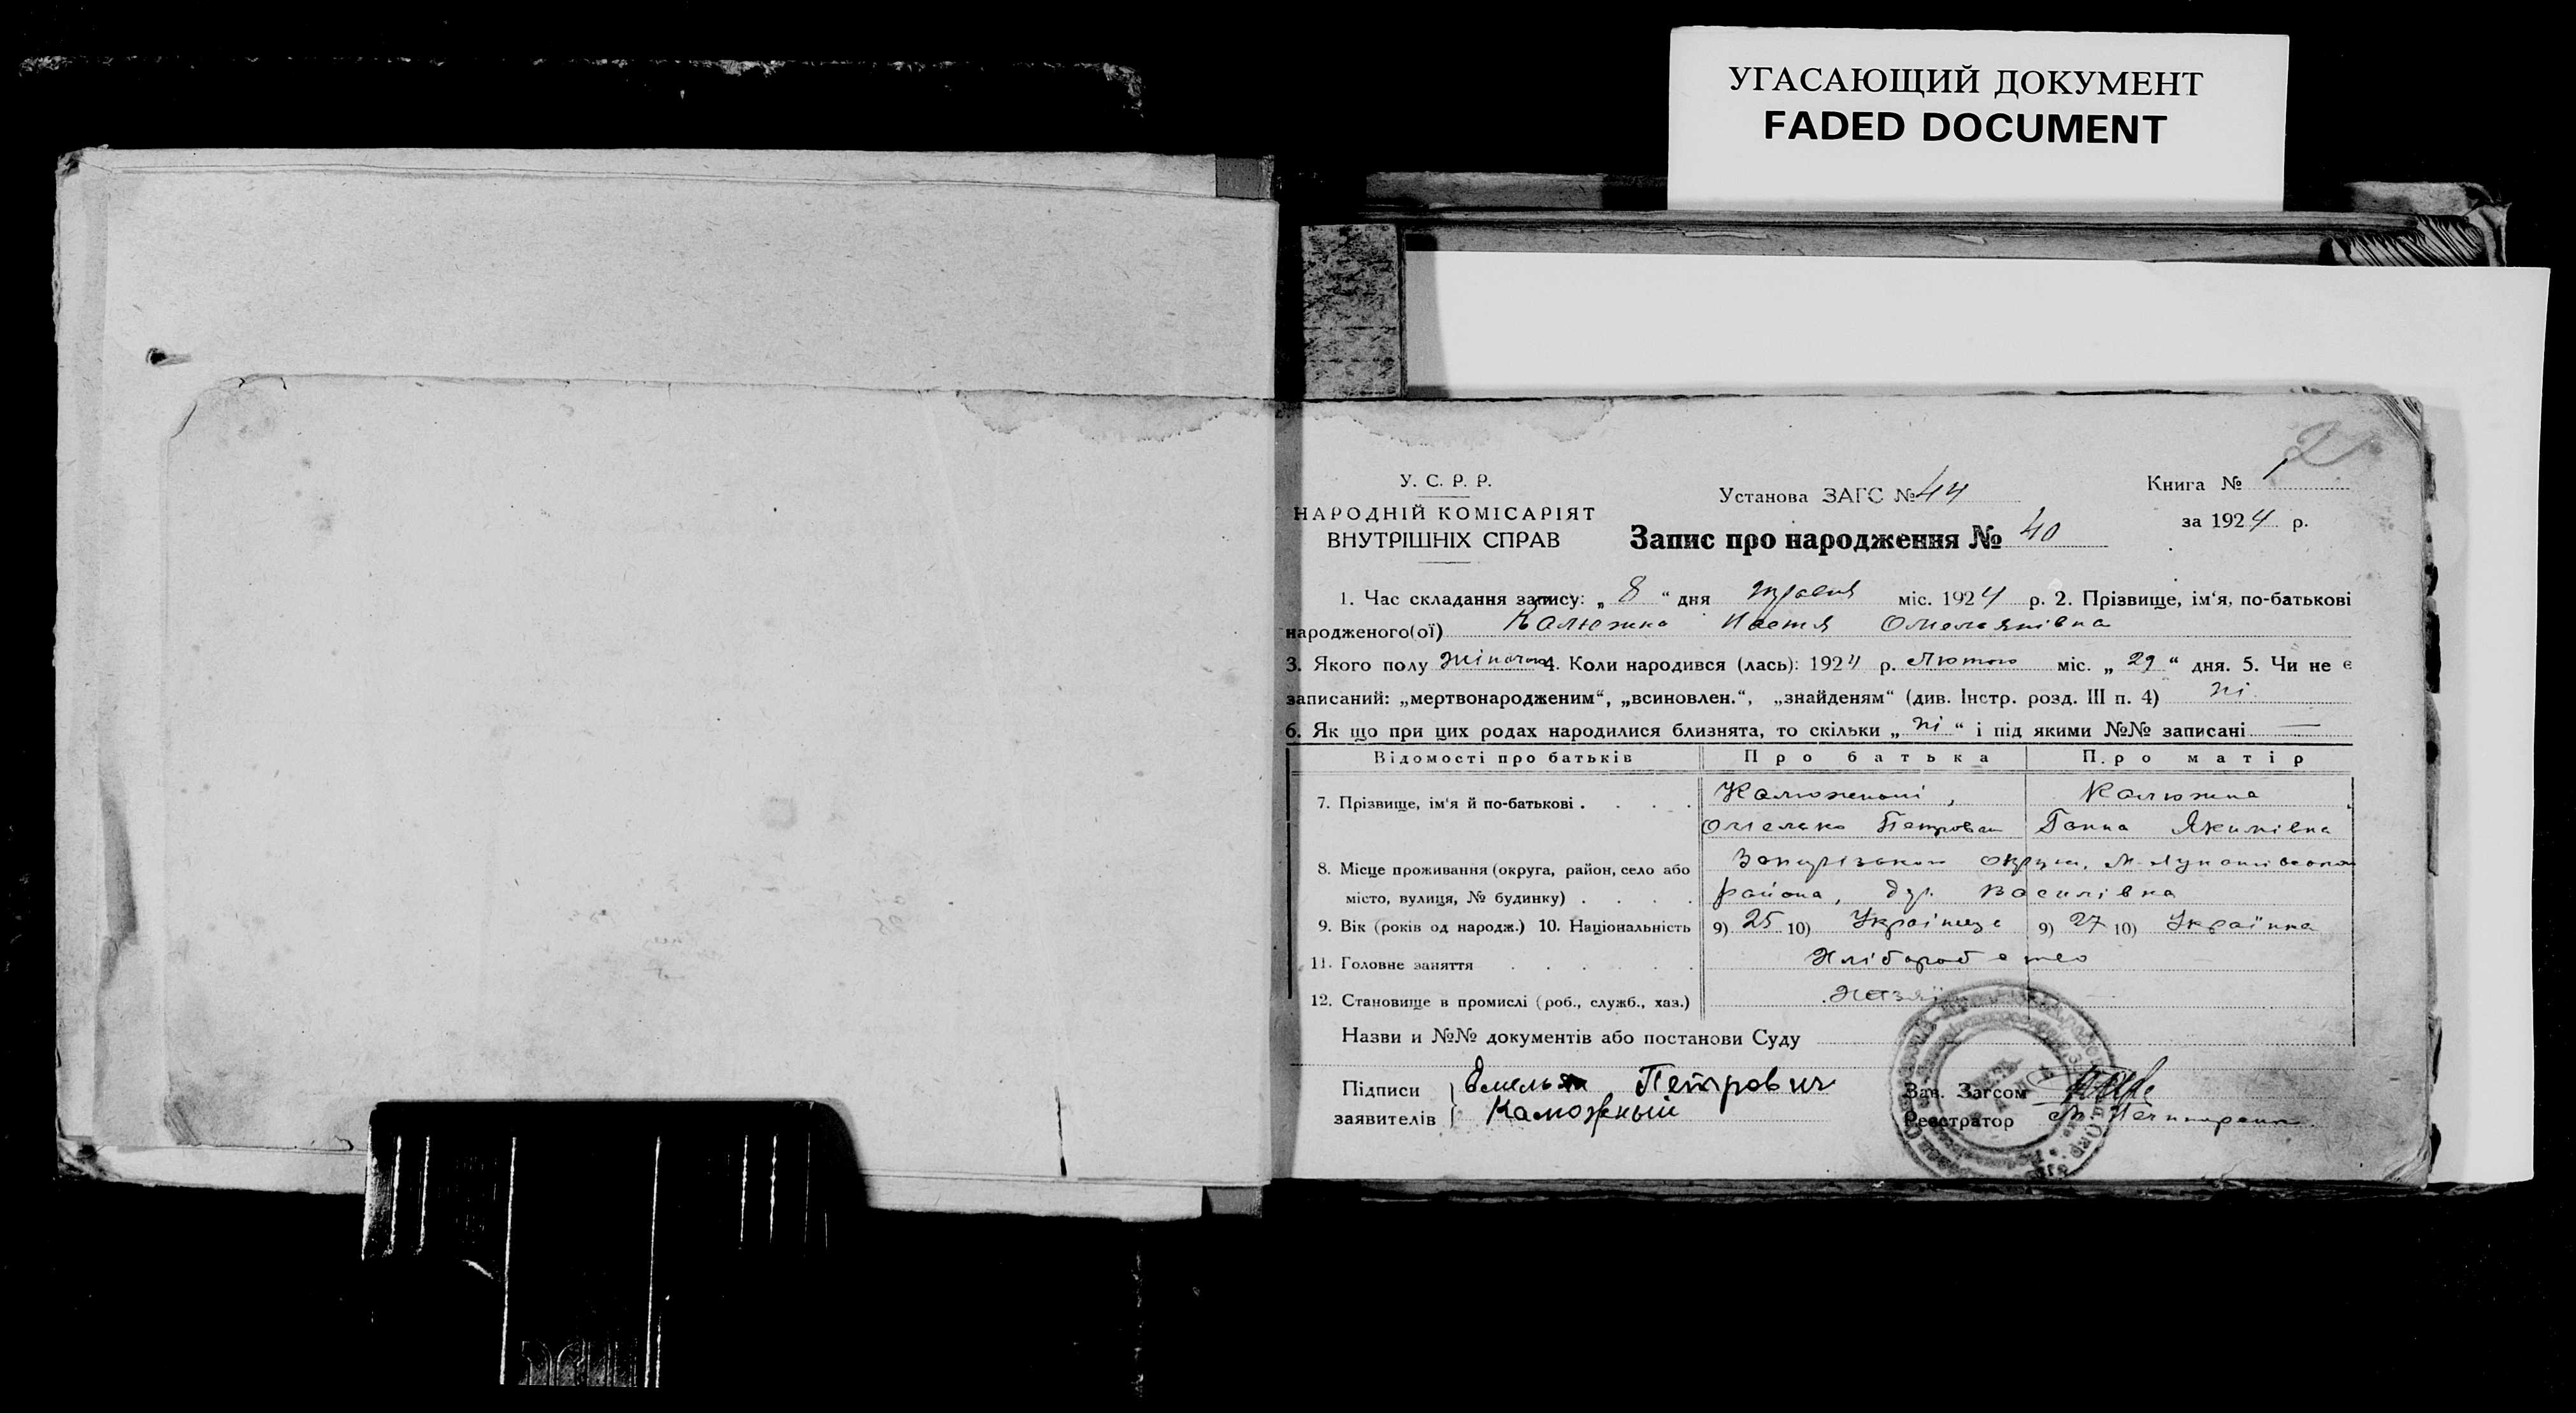 УГАСАЮЩИЙ ДОКУМЕНТ
FADED DOCUMENT
2
У. С. Р. Р.
НАРОДНІЙ КОМІСАРІЯТ
ВНУТРІШНІХ СПРАВ
Установа ЗАГС № 44
Запис про народження № 40
Книга № 1
за 1924 р.
1. Час складання запису: „ 8 “ дня травня міс. 1924 р. 2. Прізвище, ім‘я, по-батькові
народженого(ої) Калюжна Настя Омельянівна
3. Якого полу жіночого 4. Коли народився (лась): 1924 р. Лютого міс. „ 29 “ дня. 5. Чи не є
записаний: „мертвонародженим“, „всиновлен.“, „знайденям“ (див. Інстр. розд. III п. 4) ні
6. Як що при цих родах народилися близнята, то скільки „ ні “ і під якими №№ записані —
Відомості про батьків Про батька Про матір
7. Прізвище, ім‘я й по-батькові . . . . Калюжний, Калюжна
Омелько Петрович Ганна Якимівна
8. Місце проживання (округа, район, село або Запорізької округи,
місто, вулиця, № будинку) . . . . района, Василівка
9. Вік (років од народж.) 10. Національність 9) 25 10) Українець 9) 27 10) Українка
11. Головне заняття . . . . . . Хліборобство
12. Становище в промислі (роб., служб., хаз.) Хазяї
Назви и №№ документів або постанови Суду
Підписи
заявителів
Емельян Петрович
Калюжный
Зав. Загсом
Реєстратор